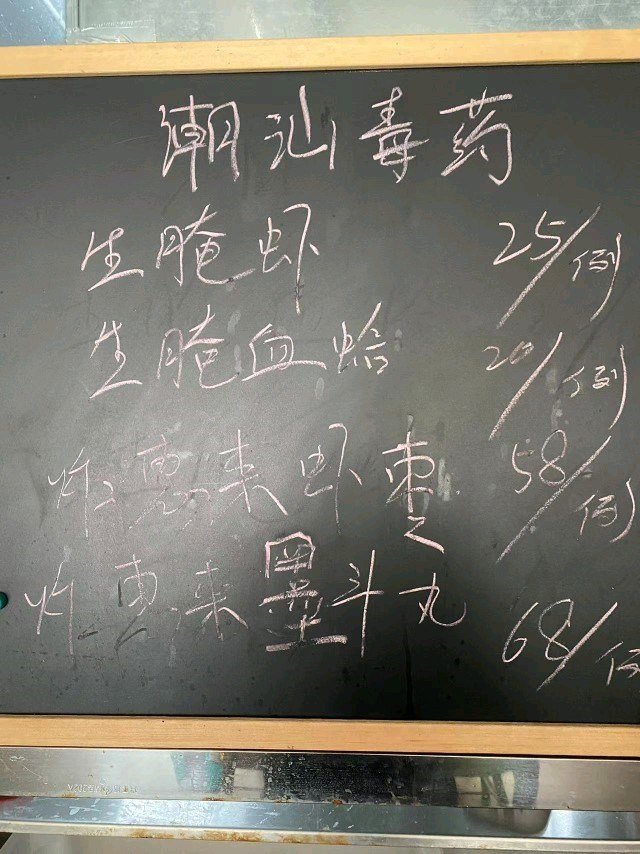 潮汕毒药
生腌虾 25/例
生腌血蛤 20/例
炸惠来虾枣 58/例
炸惠来墨斗丸 68/例